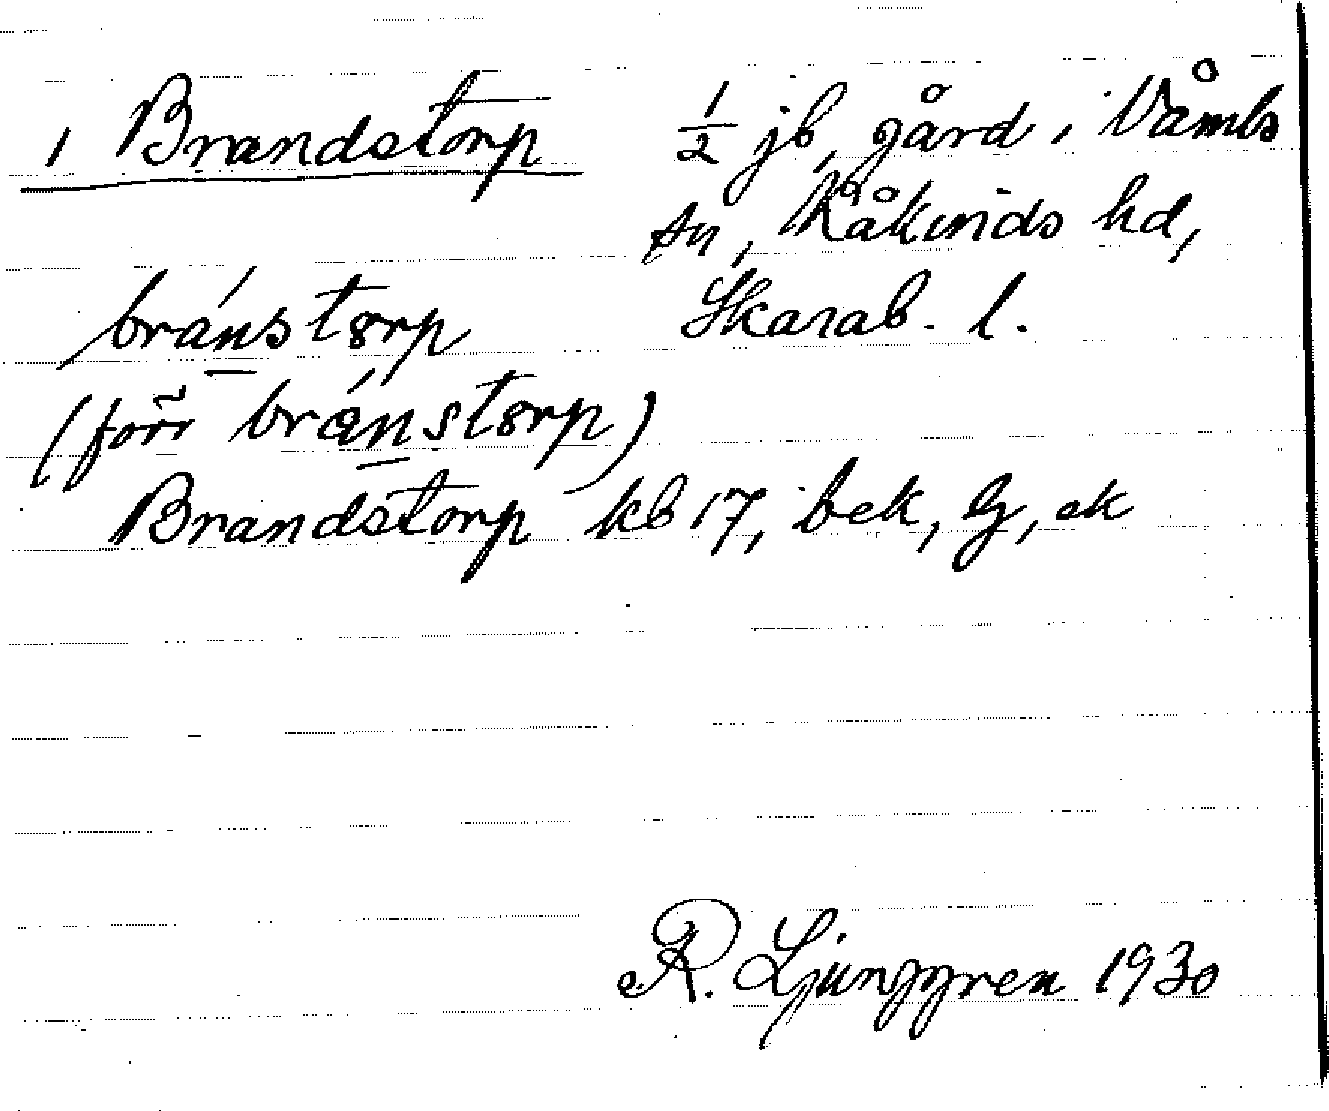 1 Brandstorp ½ jb, gård i Våmbs
sn, Kåkinds hd,
bránstorp Skarab. l.
(förr bránstorp)
Brandstorp kb 17, bek, G, ek
R. Ljunggren 1930